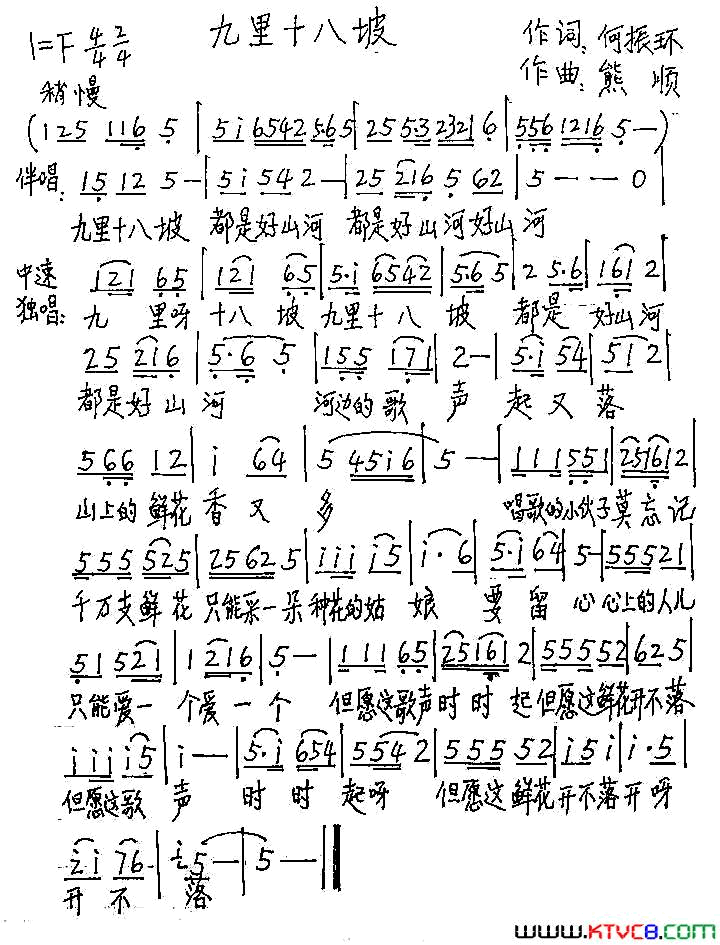 九里十八坡
1=F 4/4 2/4
作词:何振环
作曲:熊 顺
稍慢
(125 116 5 | 5i 6542 5·65 | 25 5·3 2321 6 | 556 1216 5 — )
伴唱: 15 12 5 — | 5i 54 2 — | 25 216 5 62 | 5 — — 0 |
九里十八坡 都是好山河 都是好山河好山河
中速
独唱: 121 65 | 121 65 | 5·i 6542 | 5·6 5 | 2 5·6 | 161 2 |
九 里呀 十八 坡 九里十 八 坡 都是 好山河
25 216 | 5·6 5 | 155 171 | 2 — | 5·i 54 | 51 2 |
都是好 山 河 河边的歌 声 起 又 落
566 12 | i 64 | 5 45i6 | 5 — | 111 551 | 25161 2 |
山上的鲜花 香 又 多 唱歌的小伙子莫忘记
555 525 | 2562 5 | iii i5 | i·6 | 5·i 64 | 5 — | 555521 |
千万支鲜 花 只能采一朵 种花的姑 娘 要 留 心 心上的人儿
51 521 | 1 216 | 5 — | 111 65 | 25161 2 | 555552 | 62 5 |
只能爱一 个爱一个 但愿这歌声时时 起但愿这鲜花开不落
iii i5 | i — — | 5·i 654 | 554 2 | 555 52 | i5i | i·5 |
但愿这歌 声 时 时 起呀 但愿这鲜花开不落开呀
ii 76 | i5 — | 5 — ‖
开 不 落
www.KTVC8.com